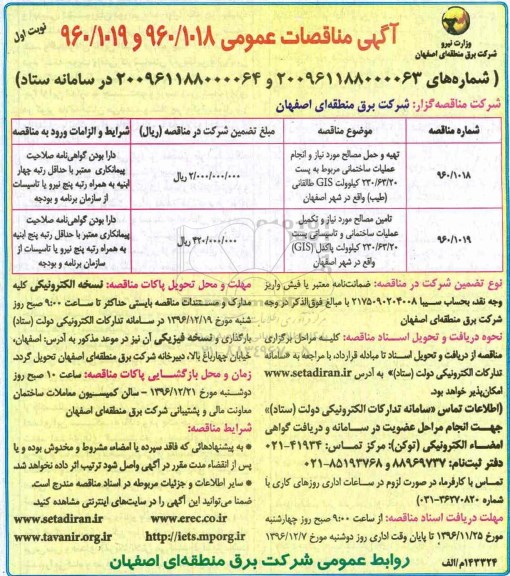 نوبت اول
آگهی مناقصات عمومی ۹۶۰/۱۰۱۸ و ۹۶۰/۱۰۱۹
وزارت نیرو
شرکت برق منطقه‌ای اصفهان
( شماره‌های ۲۰۰۹۶۱۱۸۸۰۰۰۰۶۳ و ۲۰۰۹۶۱۱۸۸۰۰۰۰۶۴ در سامانه ستاد)
شرکت مناقصه‌گزار: شرکت برق منطقه‌ای اصفهان
شماره مناقصه
موضوع مناقصه
مبلغ تضمین شرکت در مناقصه (ریال)
شرایط و الزامات ورود به مناقصه
۹۶۰/۱۰۱۸
تهیه و حمل مصالح مورد نیاز و انجام
عملیات ساختمانی مربوط به پست
۲۳۰/۶۳/۲۰ کیلوولت GIS طالقانی
(طیب) واقع در شهر اصفهان
۲/۰۰۰/۰۰۰/۰۰۰ ریال
دارا بودن گواهی‌نامه صلاحیت
پیمانکاری معتبر با حداقل رتبه چهار
ابنیه به همراه رتبه پنج نیرو یا تاسیسات
از سازمان برنامه و بودجه
۹۶۰/۱۰۱۹
تامین مصالح مورد نیاز و تکمیل
عملیات ساختمانی و تاسیساتی پست
۲۳۰/۶۳/۲۰ کیلوولت باکدل (GIS)
واقع در شهر اصفهان
۳۲۰/۰۰۰/۰۰۰ ریال
دارا بودن گواهی‌نامه صلاحیت
پیمانکاری معتبر با حداقل رتبه پنج ابنیه
به همراه رتبه پنج نیرو یا تاسیسات از
سازمان برنامه و بودجه
نوع تضمین شرکت در مناقصه: ضمانت‌نامه معتبر یا فیش واریز
وجه نقد، بحساب سیبا ۲۱۷۵۰۹۰۲۰۴۰۰۸ با مبالغ فوق‌الذکر در وجه
شرکت برق منطقه‌ای اصفهان
نحوه دریافت و تحویل اسناد مناقصه: کلیه مراحل برگزاری
مناقصه از دریافت و تحویل اسناد تا مبادله قرارداد، با مراجعه به «سامانه
تدارکات الکترونیکی دولت (ستاد)» به آدرس www.setadiran.ir
امکان‌پذیر خواهد بود.
(اطلاعات تماس «سامانه تدارکات الکترونیکی دولت (ستاد)»
جهت انجام مراحل عضویت در سامانه و دریافت گواهی
امضاء الکترونیکی (توکن): مرکز تماس: ۴۱۹۳۴-۰۲۱
دفتر ثبت‌نام: ۸۸۹۶۹۷۳۷ و ۸۵۱۹۳۷۶۸-۰۲۱
تماس با کارفرما، در صورت لزوم در ساعات اداری روزهای کاری با
شماره ۳۶۲۷۰۸۲۰-۰۳۱)
مهلت دریافت اسناد مناقصه: از ساعت ۹:۰۰ صبح روز چهارشنبه
مورخ ۱۳۹۶/۱۱/۲۵ تا پایان وقت اداری روز دوشنبه مورخ ۱۳۹۶/۱۲/۷
مهلت و محل تحویل پاکات مناقصه: نسخه الکترونیکی کلیه
مدارک و مستندات مناقصه بایستی حداکثر تا ساعت ۹:۰۰ صبح روز
شنبه مورخ ۱۳۹۶/۱۲/۱۹ در سامانه تدارکات الکترونیکی دولت (ستاد)
بارگذاری و نسخه فیزیکی آن نیز در موعد مذکور به آدرس: اصفهان،
خیابان چهارباغ بالا، دبیرخانه شرکت برق منطقه‌ای اصفهان تحویل گردد.
زمان و محل بازگشایی پاکات مناقصه: ساعت ۱۰ صبح روز
دوشنبه مورخ ۱۳۹۶/۱۲/۲۱ – سالن کمیسیون معاملات ساختمان
معاونت مالی و پشتیبانی شرکت برق منطقه‌ای اصفهان
شرایط مناقصه:
● به پیشنهادهائی که فاقد سپرده یا امضاء، مشروط و مخدوش بوده و یا
پس از انقضاء مدت مقرر در آگهی واصل شود ترتیب اثر داده نخواهد شد.
● سایر اطلاعات و جزئیات مربوطه در اسناد مناقصه مندرج است.
ضمنا می‌توانید این آگهی را در سایت‌های اینترنتی مشاهده کنید.
www.erec.co.ir www.setadiran.ir
http://iets.mporg.ir www.tavanir.org.ir
۱۴۳۳۲۴/م/الف
روابط عمومی شرکت برق منطقه‌ای اصفهان